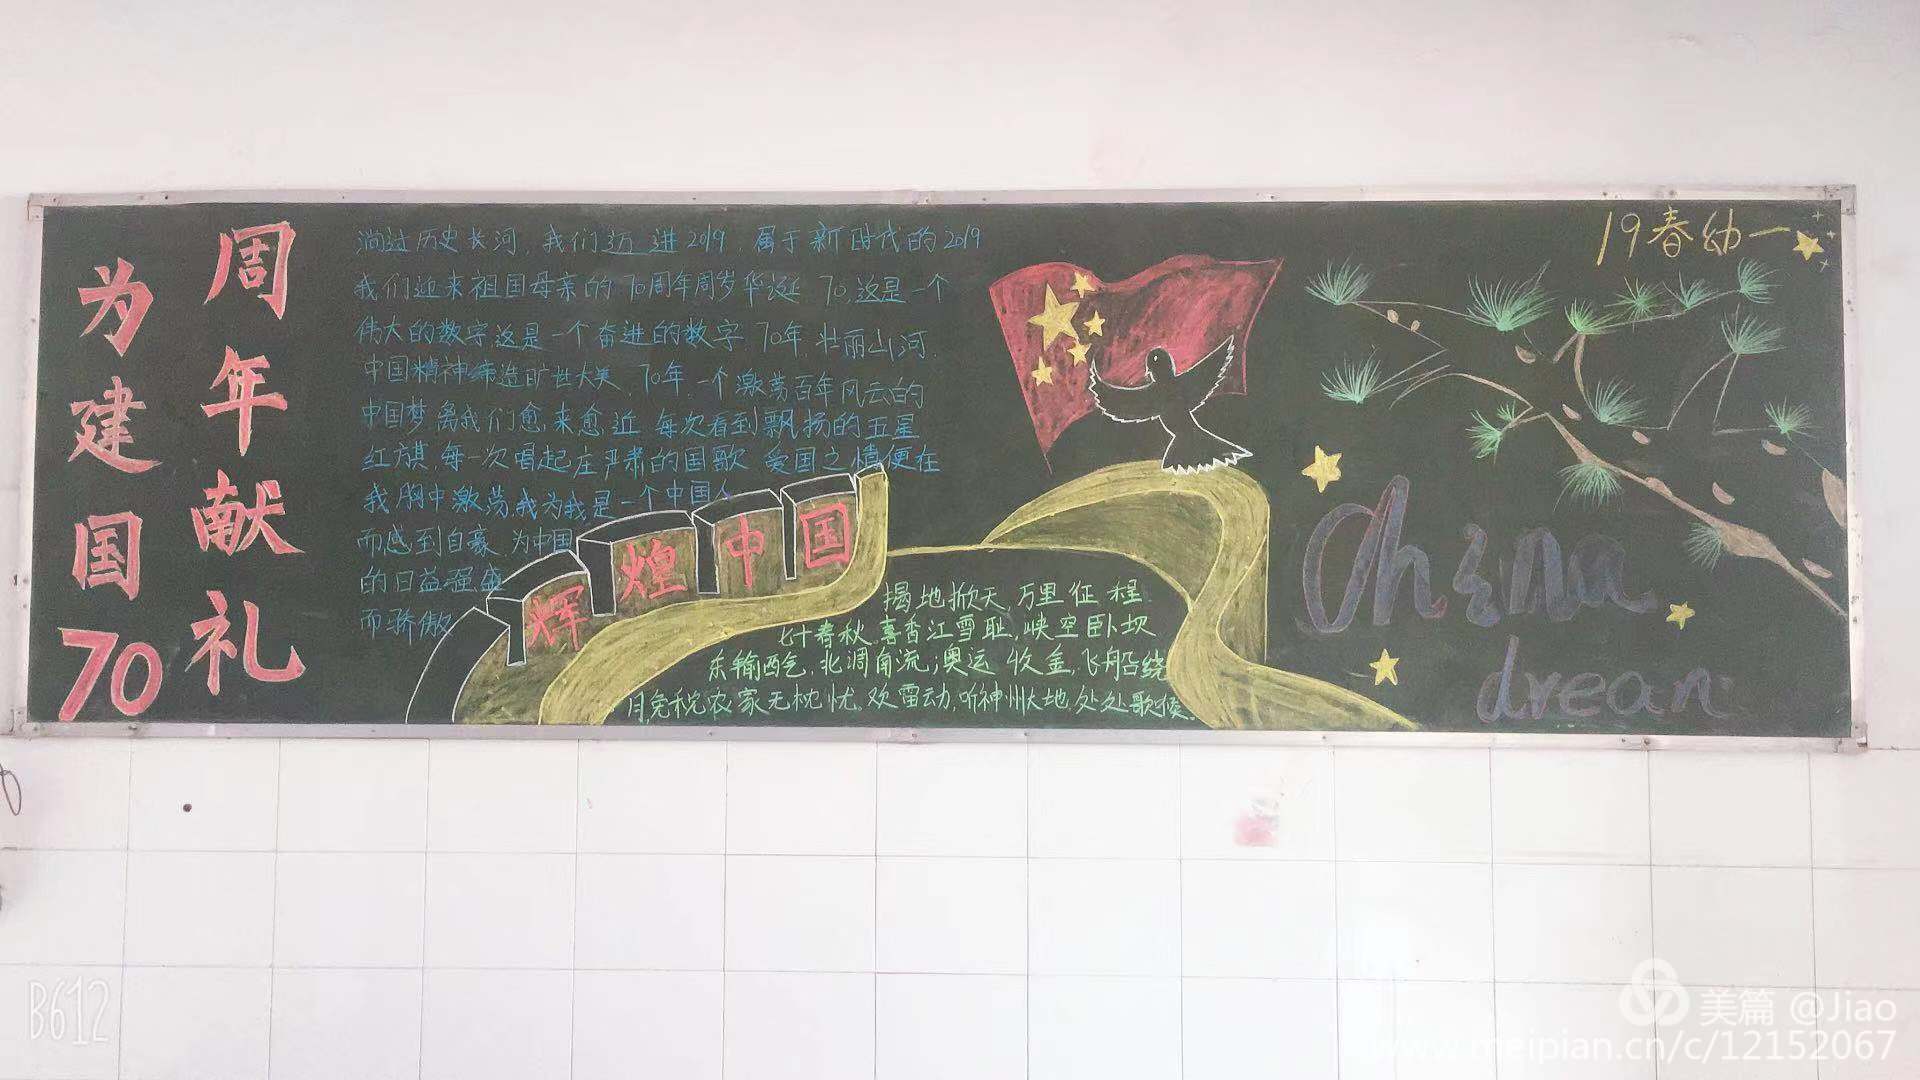 为建国70
周年献礼
淌过历史长河,我们迈进2019.属于新时代的2019
我们迎来祖国母亲的70周年周岁华诞 70,这是一个
伟大的数字,这是一个奋进的数字 70年,壮丽山河.
中国精神缔造旷世大美.70年.一个激荡百年风云的
中国梦离我们愈来愈近 每次看到飘扬的五星
红旗,每一次唱起庄严肃的国歌 爱国之情便在
我胸中激荡,我为我是一个中国人
而感到自豪.为中国
的日益强盛
而骄傲
辉煌中国
揭地掀天,万里征程.
七十春秋,喜香江雪耻,峡空卧坝
东输西气,北调南流;奥运收金,飞船绕
月,免税农家无忱忧.欢雷动,听神州大地,处处歌候.
19春幼一
China
drean
B612
美篇 @Jiao
www.meipian.cn/c/12152067